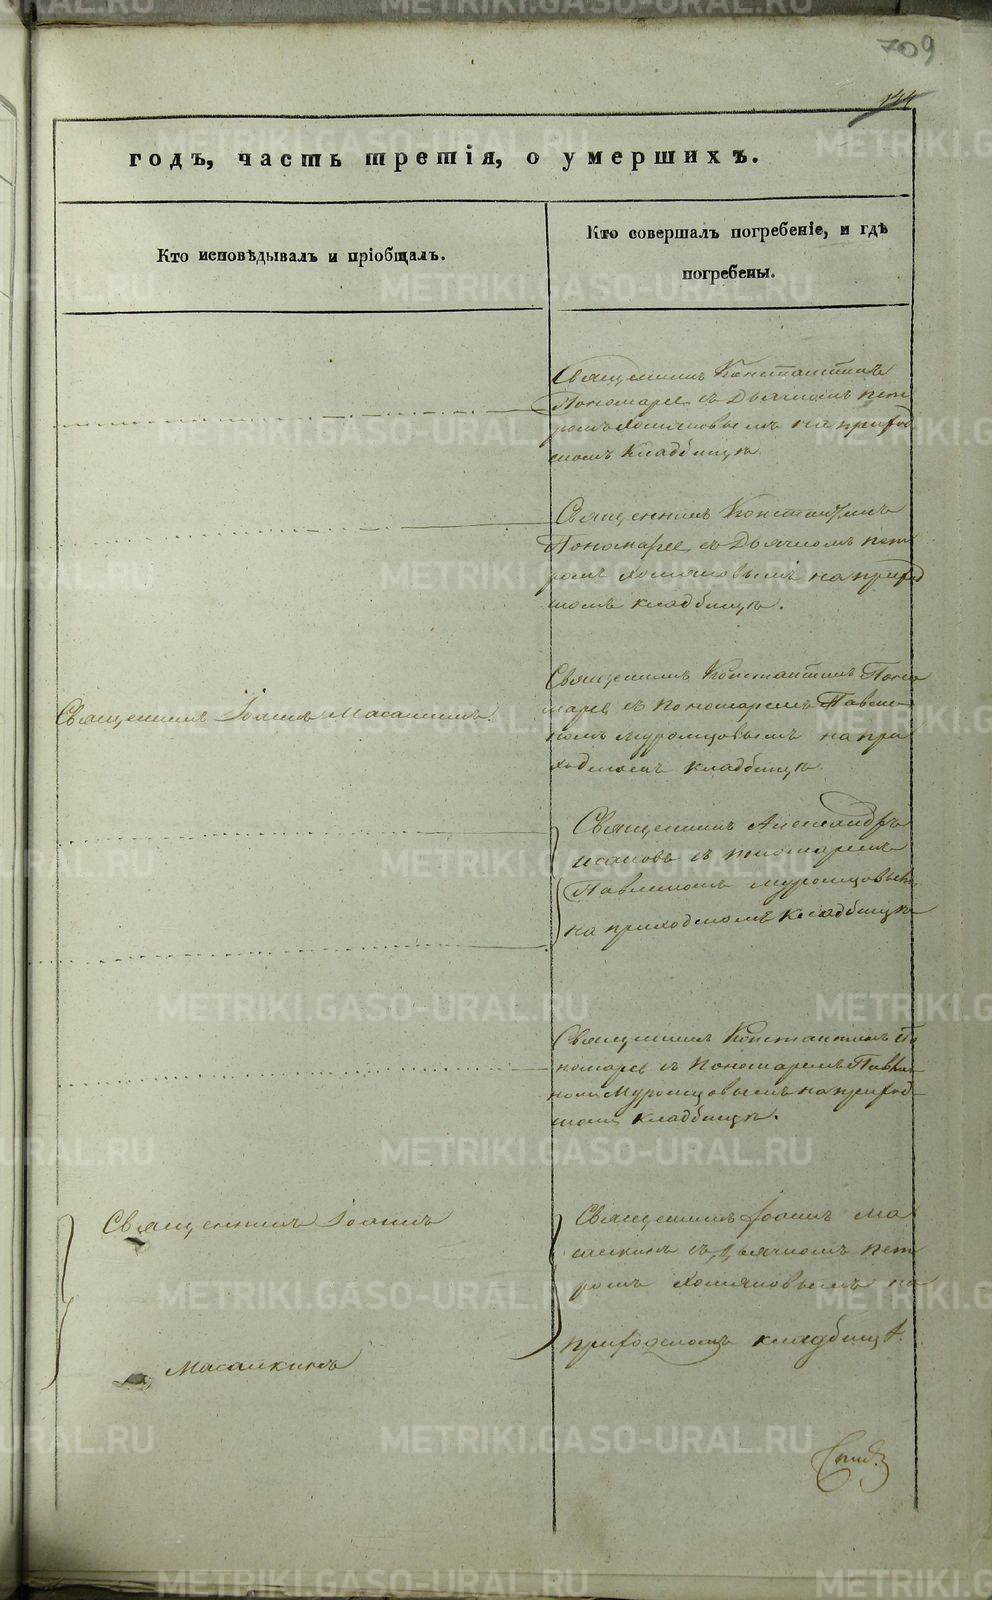 709
144
годъ, часть третія, о умершихъ.
Кто исповѣдывалъ и пріобщалъ.
Кто совершалъ погребеніе, и гдѣ
погребены.
Священникъ Константинъ
Пономарев съ Дьячкомъ Пет
ромъ Хомяковымъ на приход
скомъ Кладбищѣ
Священникъ Константинъ
Пономарев съ Дьячкомъ Пет
ромъ Хомяковымъ на приход
скомъ кладбищѣ.
Священникъ Іоаннъ Масалкинъ.
Священникъ Константинъ Поно
марев съ Пономаремъ Павли
номъ Муромцовымъ на при
ходскомъ кладбищѣ
Священникъ Александръ
съ пономаремъ
Павлиномъ Муромцовымъ
на приходскомъ Кладбищѣ
Священникъ Константинъ По
номарев съ Пономаремъ Павли
номъ Муромцовымъ на приход
скомъ кладбищѣ.
Священникъ Іоаннъ
Масалкинъ
Священникъ Іоаннъ Ма
салкинъ съ Дьячкомъ Пет
ромъ Хомяковымъ на
приходскомъ кладбищѣ.
METRIKI.GASO-URAL.RU